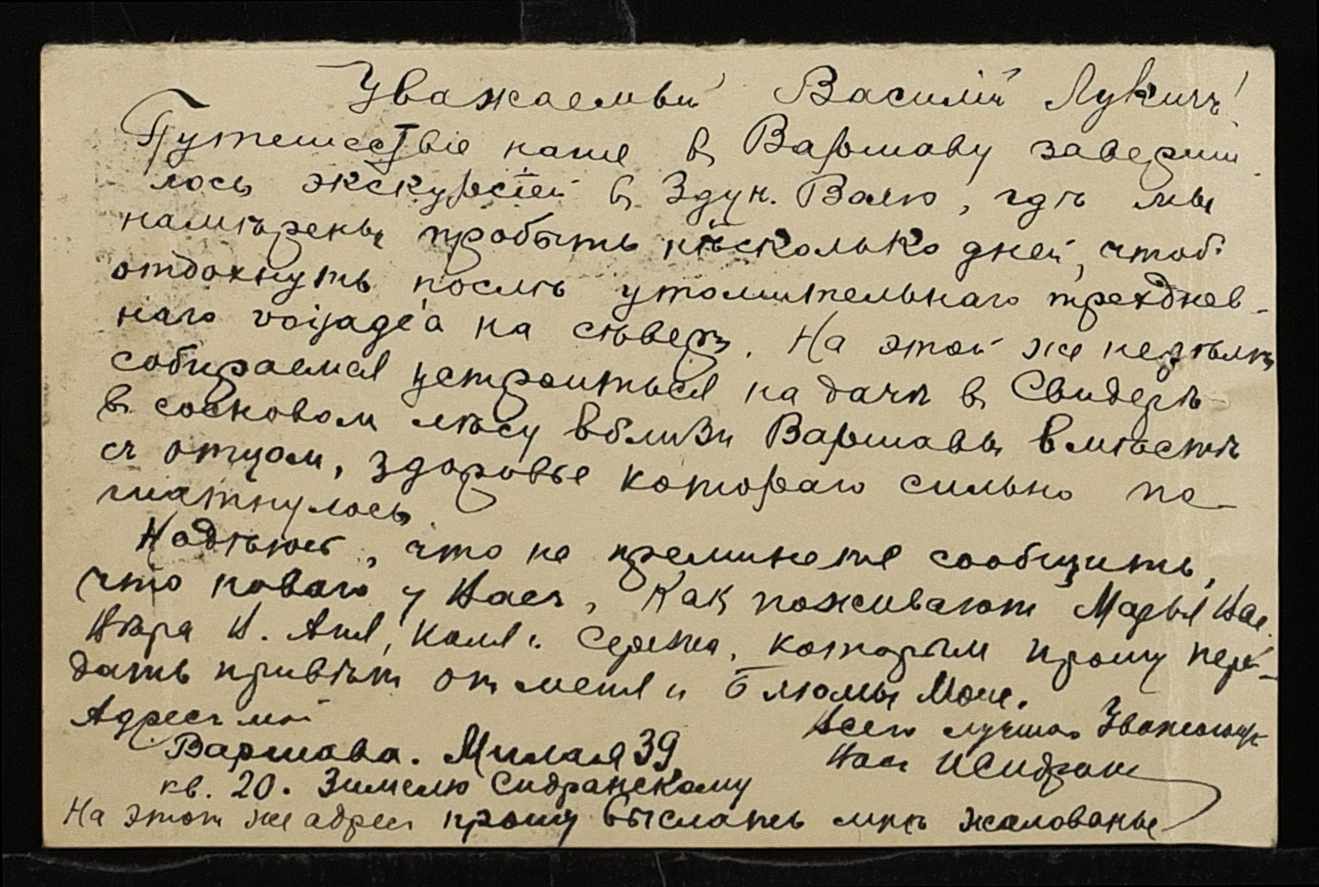 Уважаемый Василій Лукичъ!
Путешествіе наше въ Варшаву заверши
лось экскурсіей въ Здун. Волю, гдѣ мы
намѣрены пробыть нѣсколько дней, чтоб
отдохнуть послѣ утомительнаго трехднев-
наго voyage'а на сѣверъ. На этой же недѣлѣ
собираемся устроиться на дачѣ въ Свидерѣ
въ сосновом лѣсу вблизи Варшавы вмѣстѣ
съ отцом, здоровье котораго сильно по-
шатнулось.
Надѣюсь, что не преминете сообщить,
что новаго у Васъ, Как поживают Марья Вас.
В. Аня, Коля и Сережа, которым прошу пере-
дать привѣт от меня и Блюмы Моис.
Адресъ мой
Всего лучшаго Уважающій
Варшава. Милая 39
Вас ИСидран
кв. 20. Зимелю Сидранскому
На этот же адрес прошу выслать мнѣ жалованье